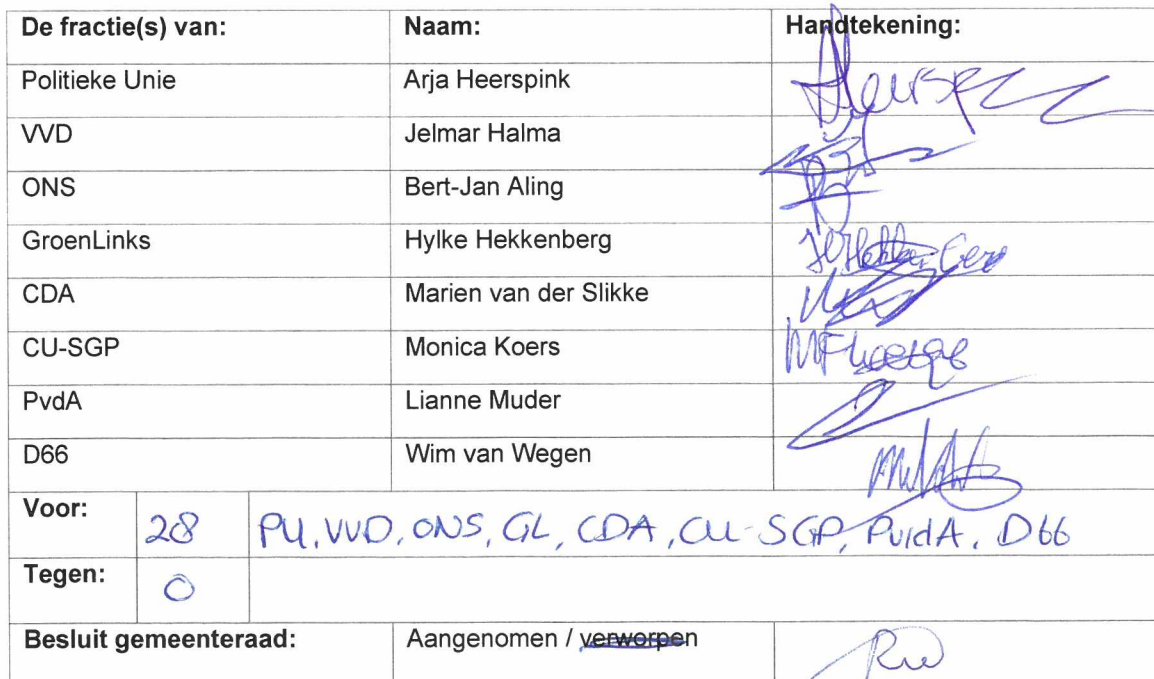 De fractie(s) van: Naam: Handtekening:
Politieke Unie Arja Heerspink
VVD Jelmar Halma
ONS Bert-Jan Aling
GroenLinks Hylke Hekkenberg
CDA Marien van der Slikke
CU-SGP Monica Koers
PvdA Lianne Muder
D66 Wim van Wegen
Voor: 28 PU, VVD, ONS, GL, CDA, CU-SGP, PvdA, D66
Tegen: 0
Besluit gemeenteraad: Aangenomen / verworpen